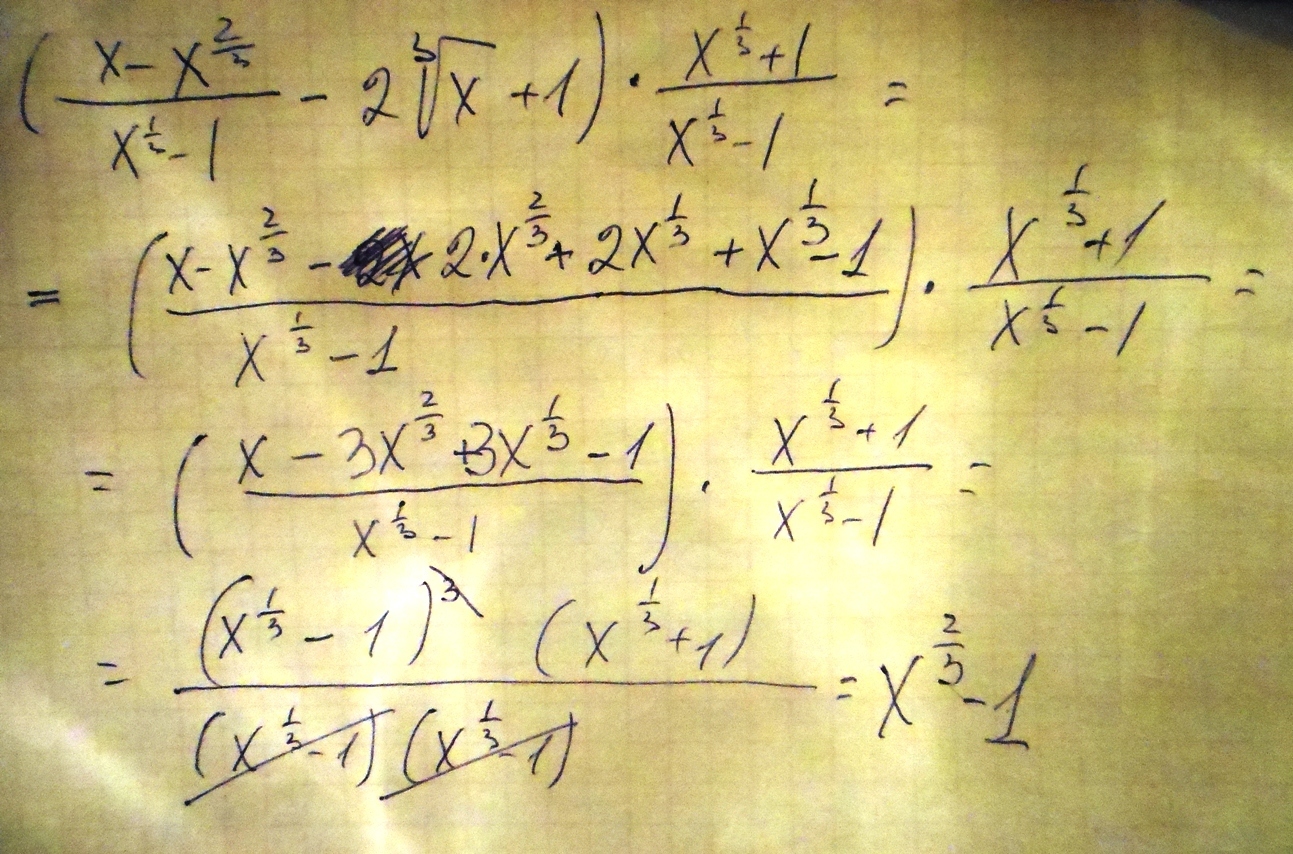 (\frac{x-x^{\frac{2}{3}}}{x^{\frac{1}{3}}-1} - 2\sqrt[3]{x}+1) \cdot \frac{x^{\frac{1}{3}}+1}{x^{\frac{1}{3}}-1} =
= (\frac{x-x^{\frac{2}{3}}-2 \cdot x^{\frac{2}{3}}+2x^{\frac{1}{3}}+x^{\frac{1}{3}}-1}{x^{\frac{1}{3}}-1}) \cdot \frac{x^{\frac{1}{3}}+1}{x^{\frac{1}{3}}-1} =
= (\frac{x-3x^{\frac{2}{3}}+3x^{\frac{1}{3}}-1}{x^{\frac{1}{3}}-1}) \cdot \frac{x^{\frac{1}{3}}+1}{x^{\frac{1}{3}}-1} =
= \frac{(x^{\frac{1}{3}}-1)^{3} (x^{\frac{1}{3}}+1)}{(x^{\frac{1}{3}}-1)(x^{\frac{1}{3}}-1)} = x^{\frac{2}{3}}-1